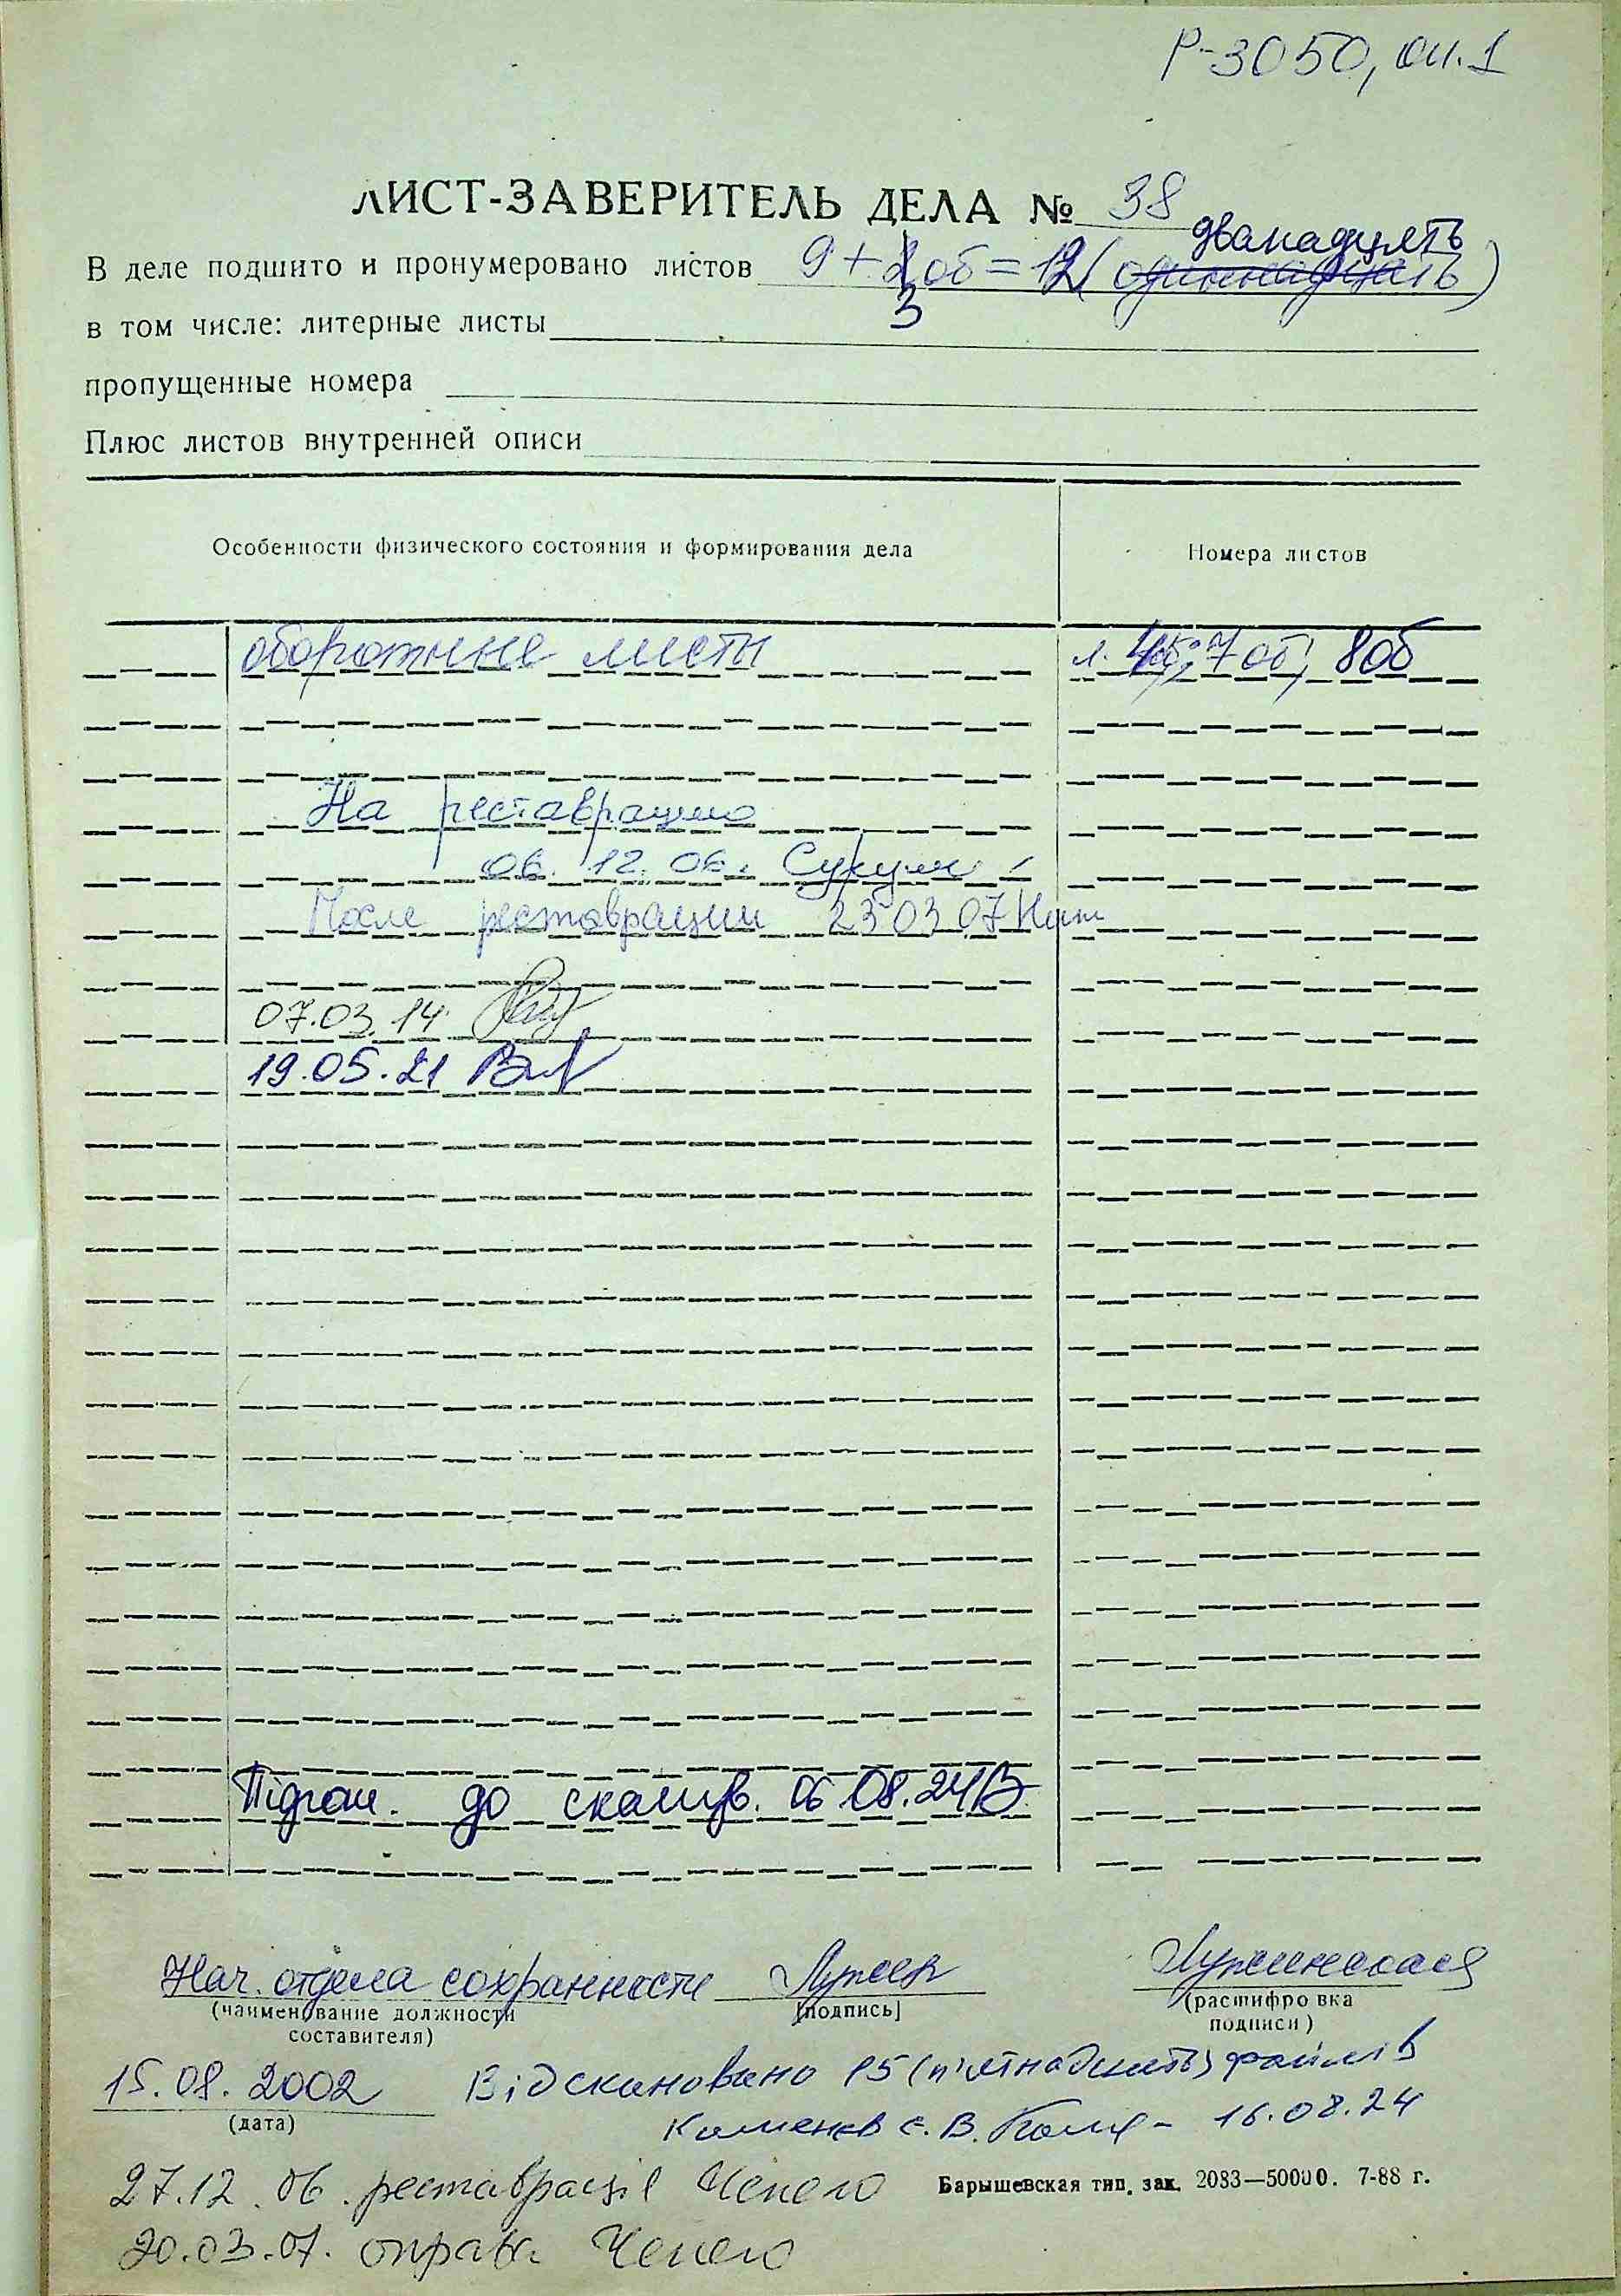 Р-3050, оп.1
ЛИСТ-ЗАВЕРИТЕЛЬ ДЕЛА № 38
дванадцять
В деле подшито и пронумеровано листов 9 + 2 об = 12 (одиннадцать)
3
в том числе: литерные листы
пропущенные номера
Плюс листов внутренней описи
Особенности физического состояния и формирования дела Номера листов
оборотные листы л. 7об, 8об
На реставрацию
06.12.06.
После реставрации 23 03 07
07.03.14
19.05.21
Підгот. до сканув. 06 08.24
Нач. отдела сохранности
(наименование должности составителя) [подпись] (расшифровка подписи)
15.08.2002 Відскановано 15 (п'ятнадцять) файлів
(дата)
Каменєв Є. В. 16.08.24
27.12.06. реставрації Чепего
Барышевская тип. зак. 2083—50000. 7-88 г.
20.03.07. оправа Чепего